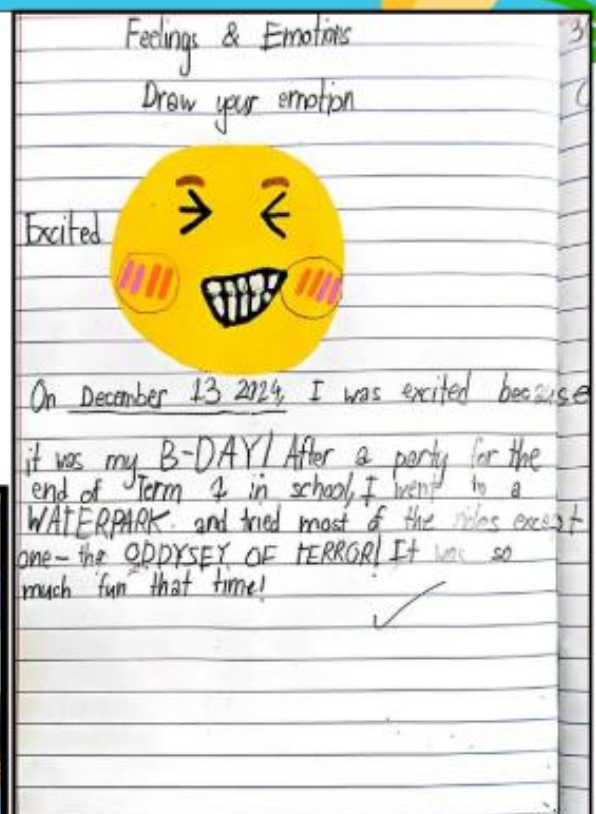 Feelings & Emotions
Draw your emotion
Excited
On December 13 2024, I was excited because
it was my B-DAY! After a party for the
end of Term 1 in school, I went to a
WATERPARK. and tried most of the rides except
one- the ODDYSEY OF TERROR! It was so
much fun that time!